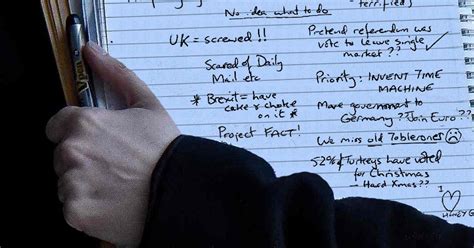 terrified)
No idea what to do
UK = screwed!!
Scared of Daily
Mail etc
* Brexit = have
cake & choke
on it *
Project FACT!
Pretend referendum was
vote to leave single
market??
Priority: INVENT TIME
MACHINE
Move government to
Germany?? Join Euro??
We miss old Toblerones
52% of Turkeys have voted
for Christmas
- Hard Xmas??
I